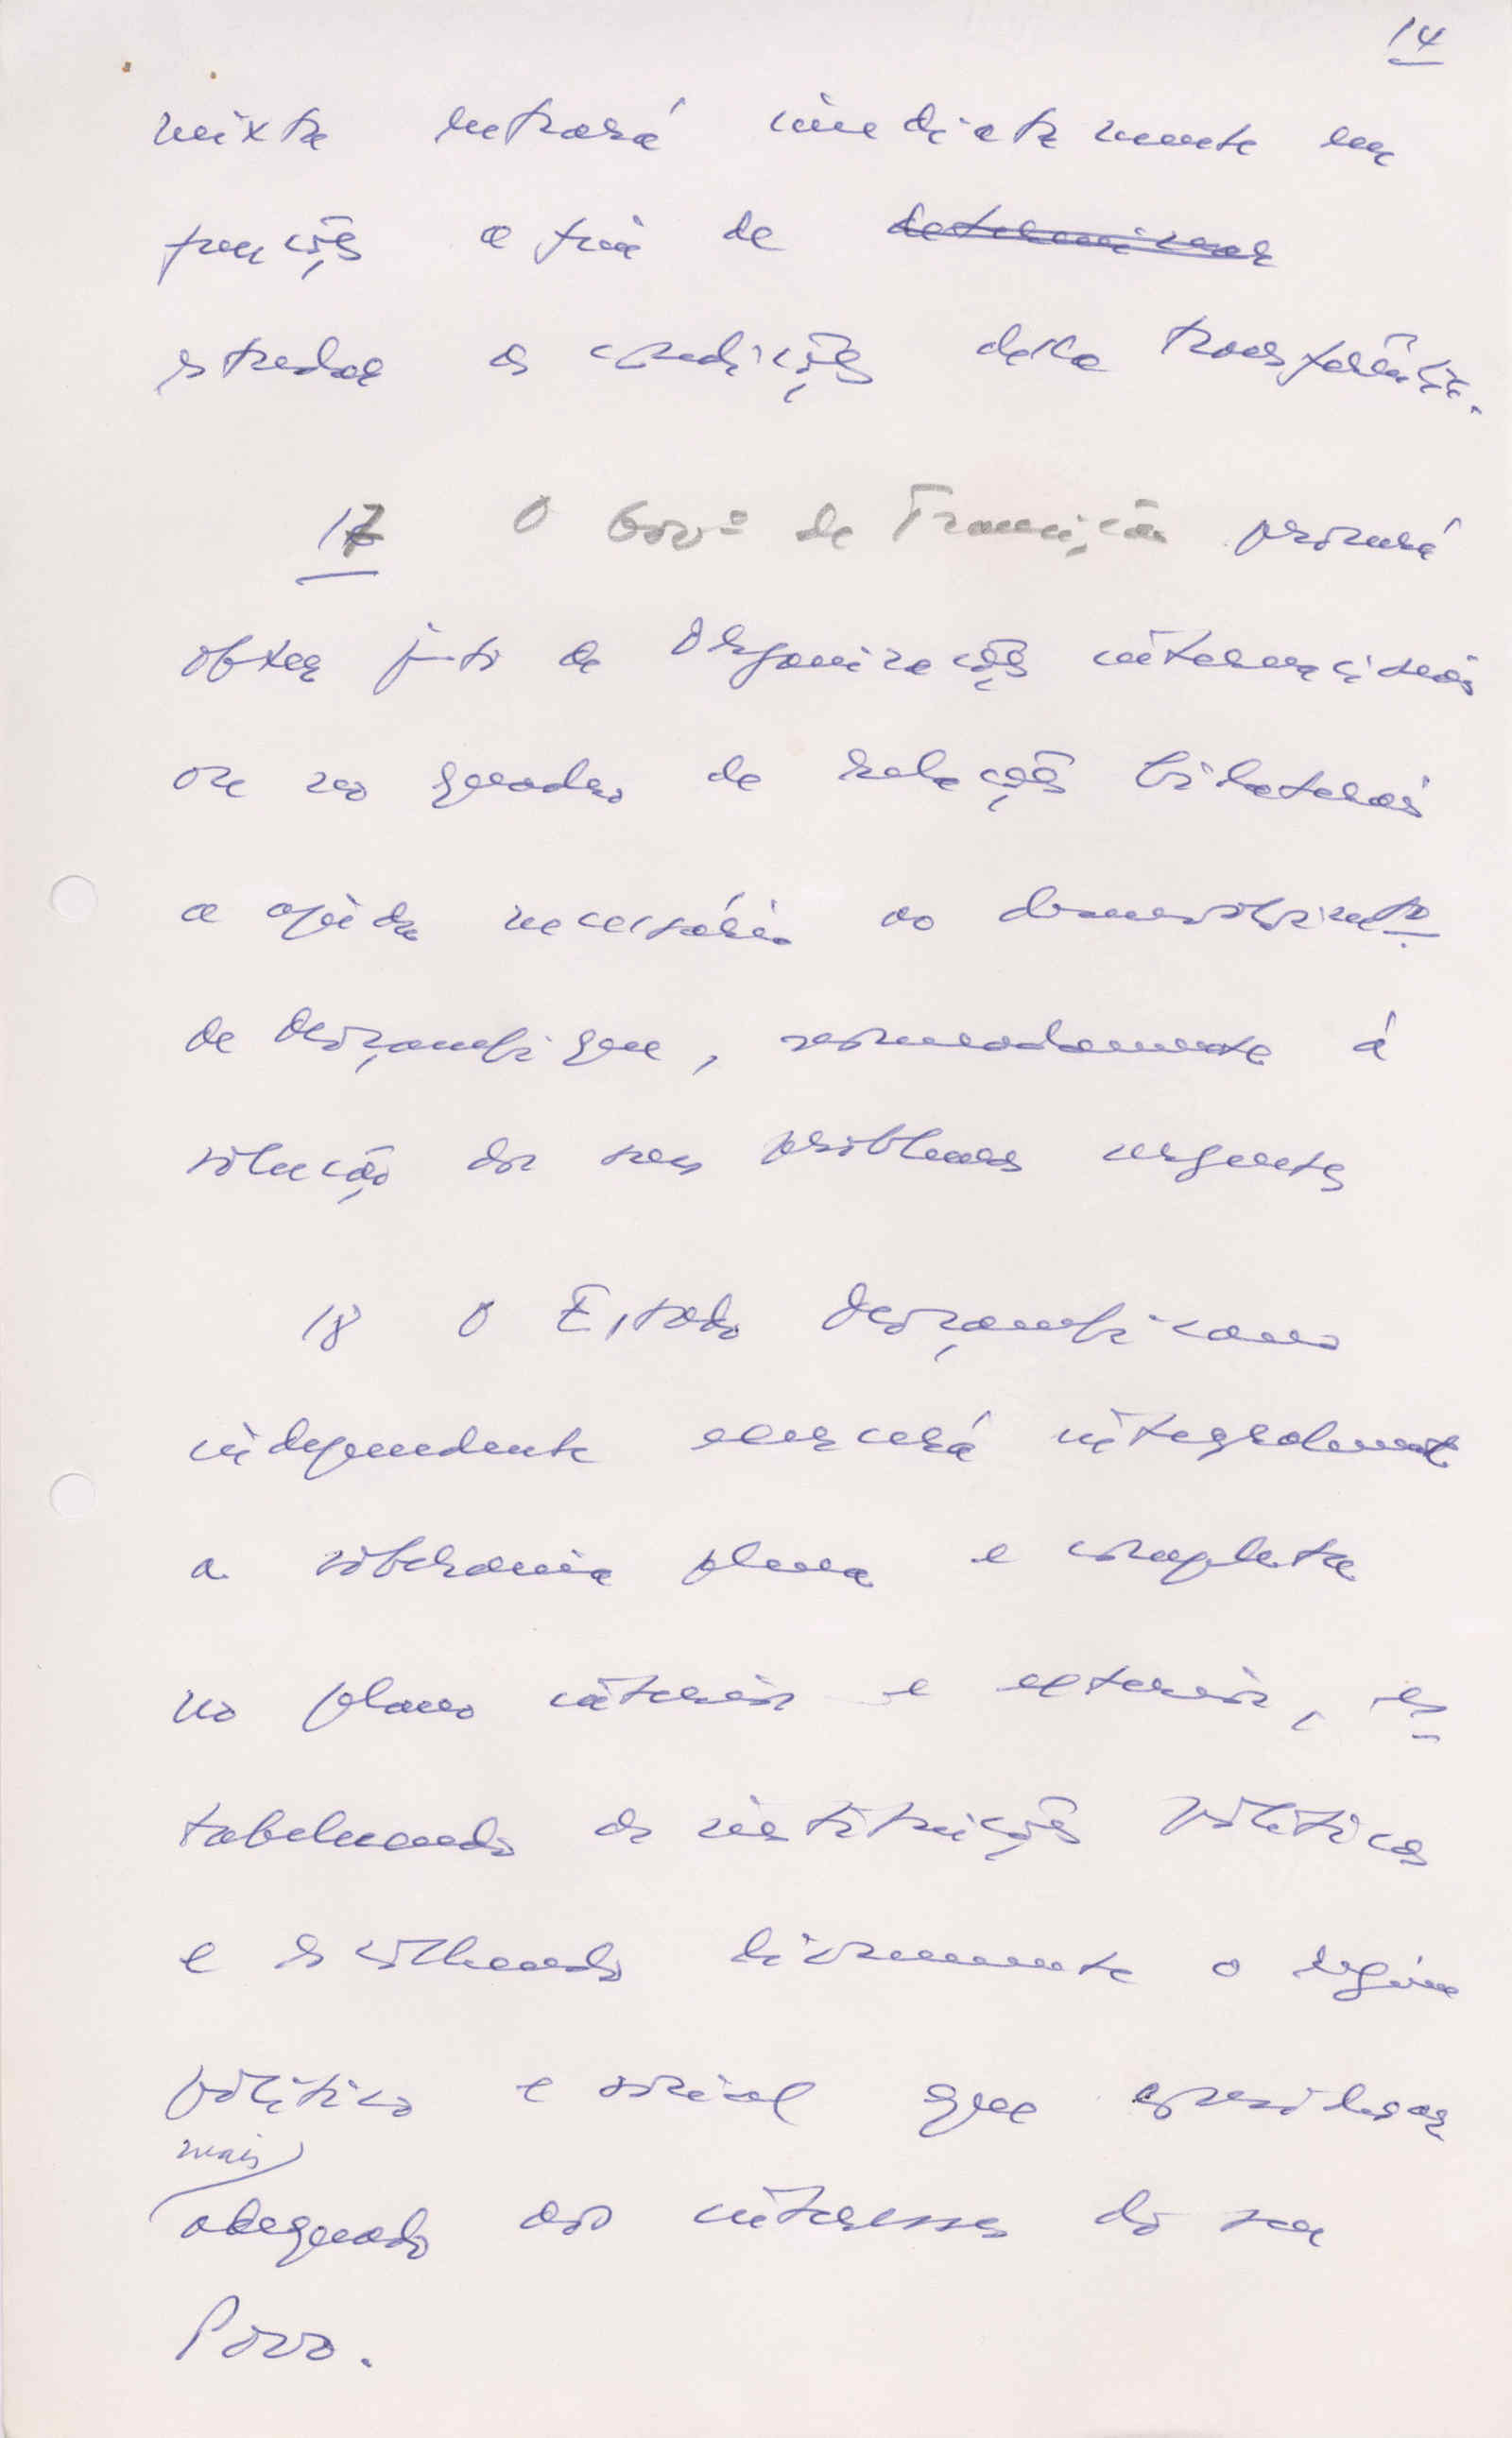 14
mixta entrará imediatamente em
funções a fim de determinar
estudar as condições desta transferência.
17 O Govº de Transição procurará
obter junto de Organizações internacionais
ou no quadro de relações bilaterais
a ajuda necessária ao desenvolvimento
de Moçambique, nomeadamente à
solução dos seus problemas urgentes
18 O Estado Moçambicano
independente exercerá integralmente
a soberania plena e completa
no plano interior e exterior, es
tabelecendo as instituições políticas
e escolhendo livremente o regime
político e social que considerar
mais
adequado aos interesses do seu
Povo.